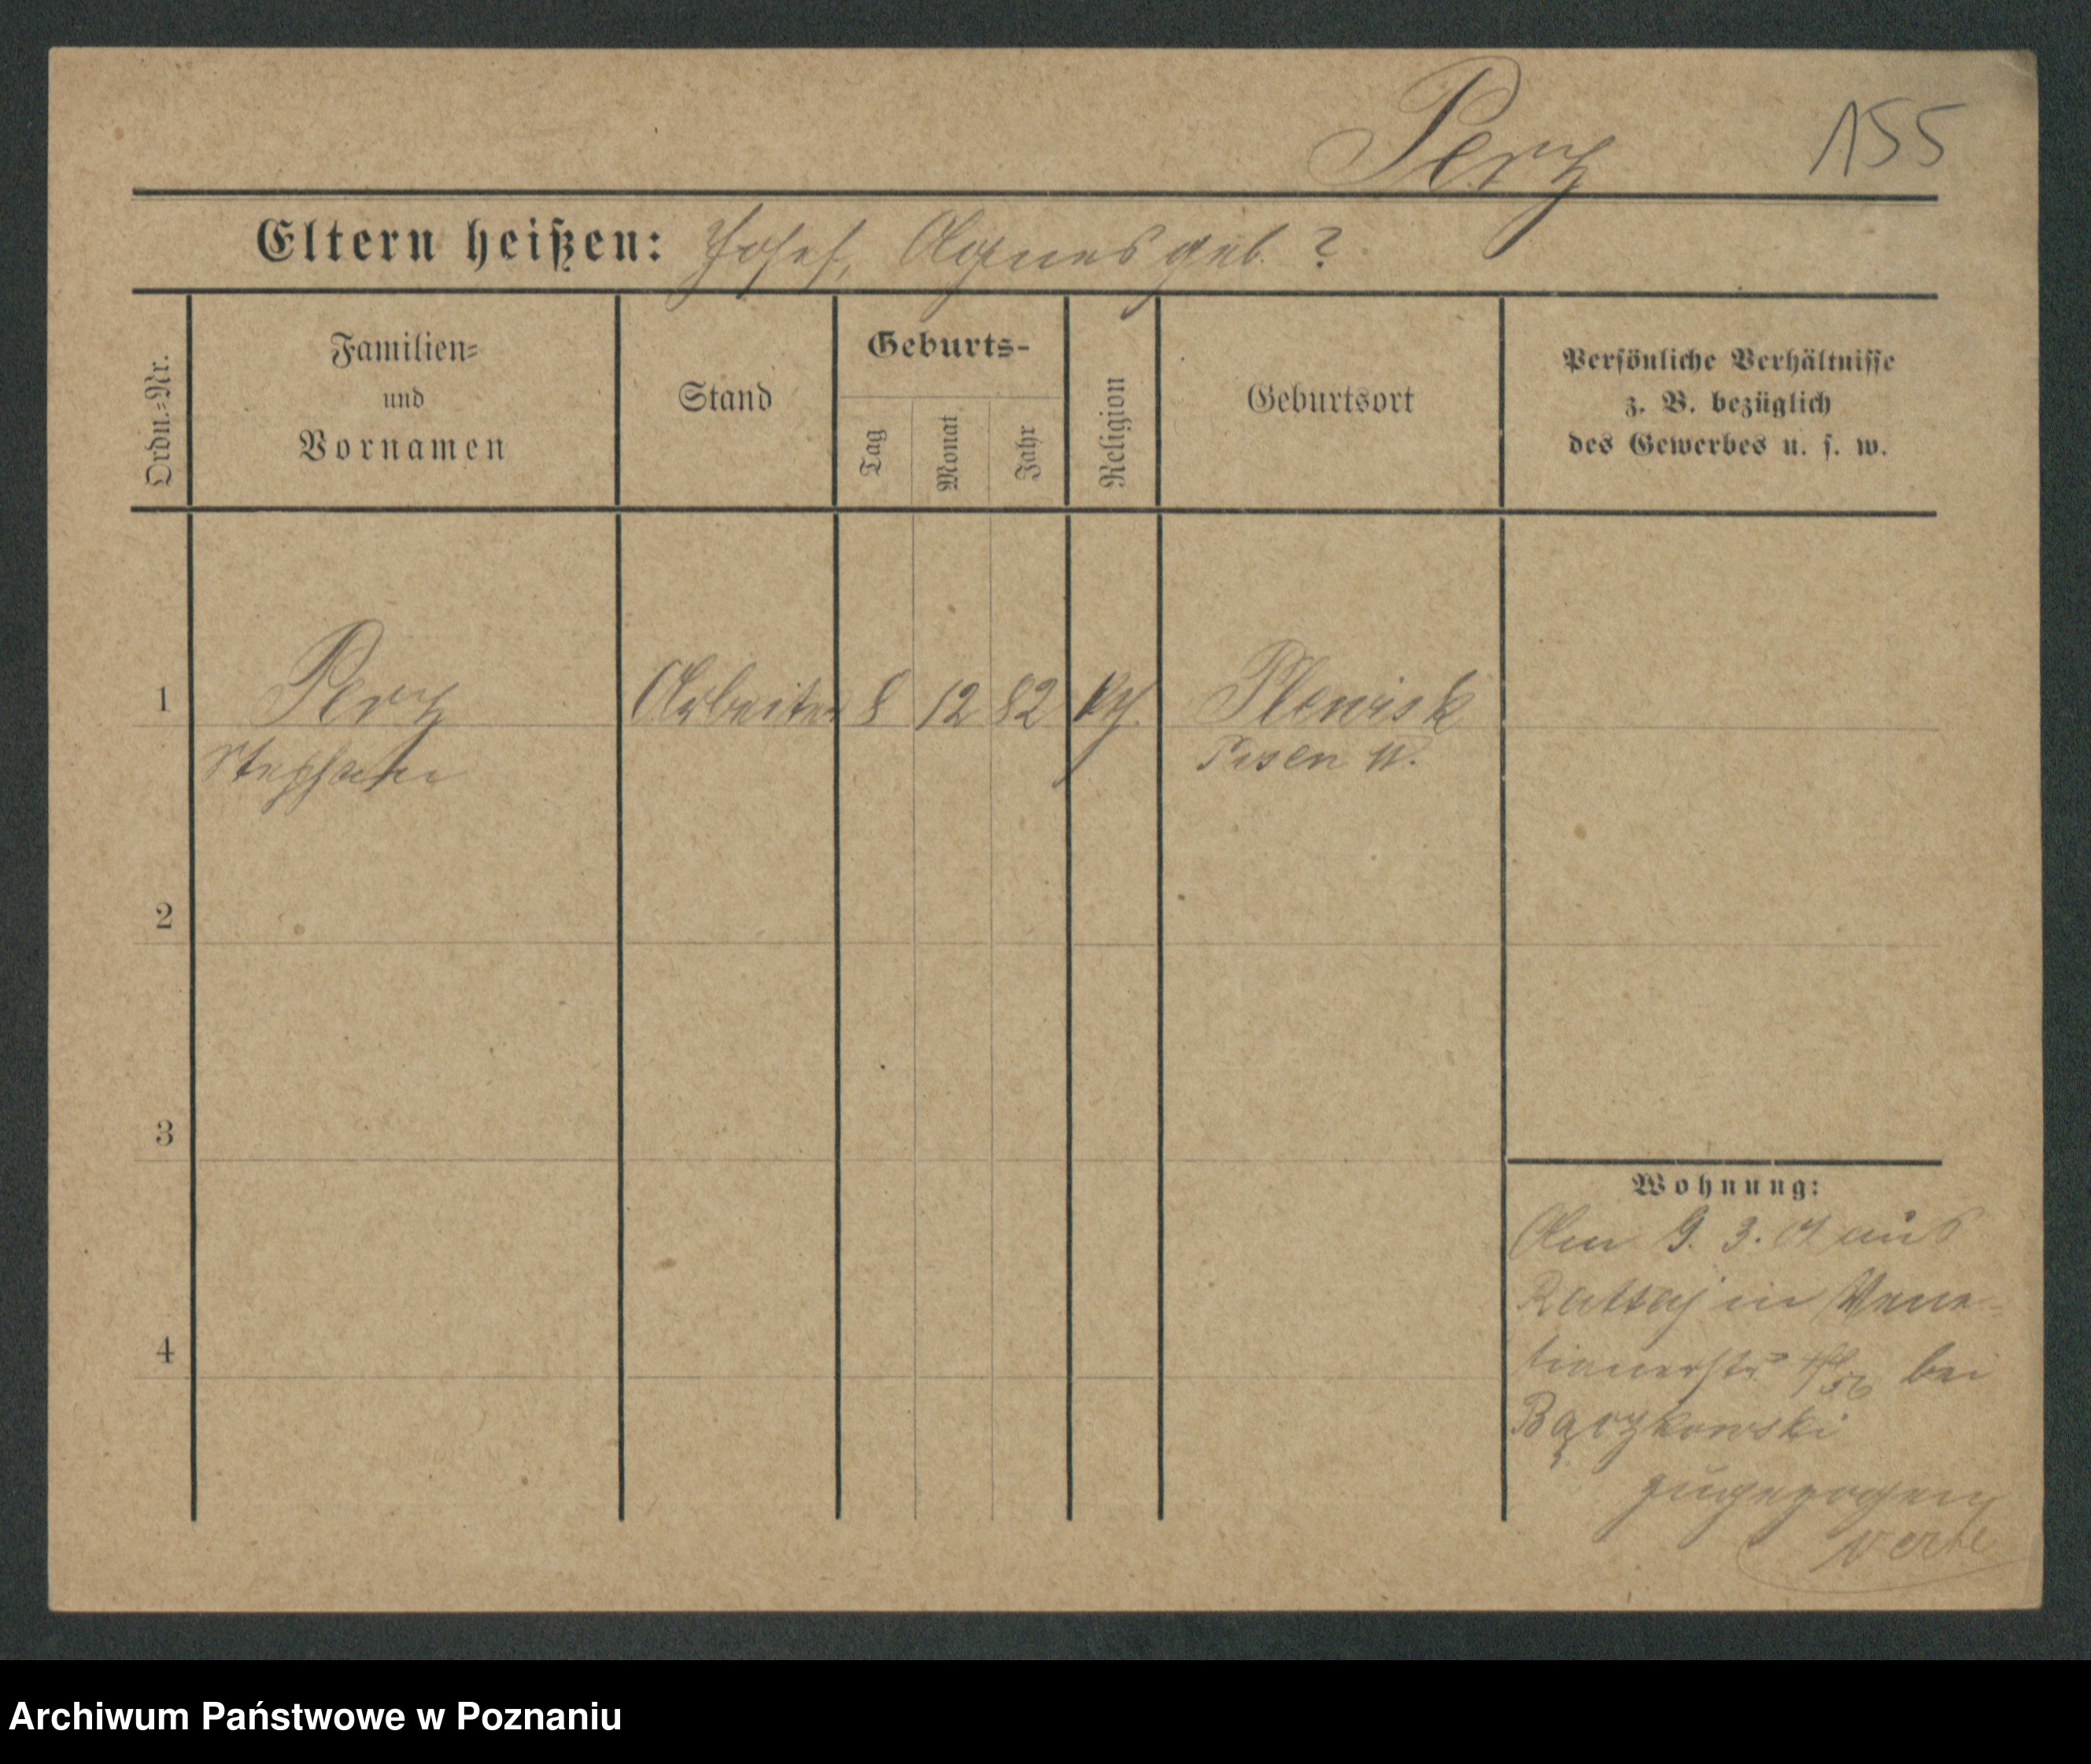 Perz 155
Eltern heißen: Josef, Agnes geb. ?
Ordn.=Nr.
Familien=
und
Vornamen
Stand
Geburts-
Tag
Monat
Jahr
Religion
Geburtsort
Persönliche Verhältnisse
z. B. bezüglich
des Gewerbes u. s. w.
1 Perz Arbeiter 8 12 82 Plewisk
Stephan Posen W.
2
3
4
Wohnung:
Am 9. 3. 07 aus
Rattaj in Vene-
tianerstr bei
Bączkowski
zugezogen
verte
Archiwum Państwowe w Poznaniu